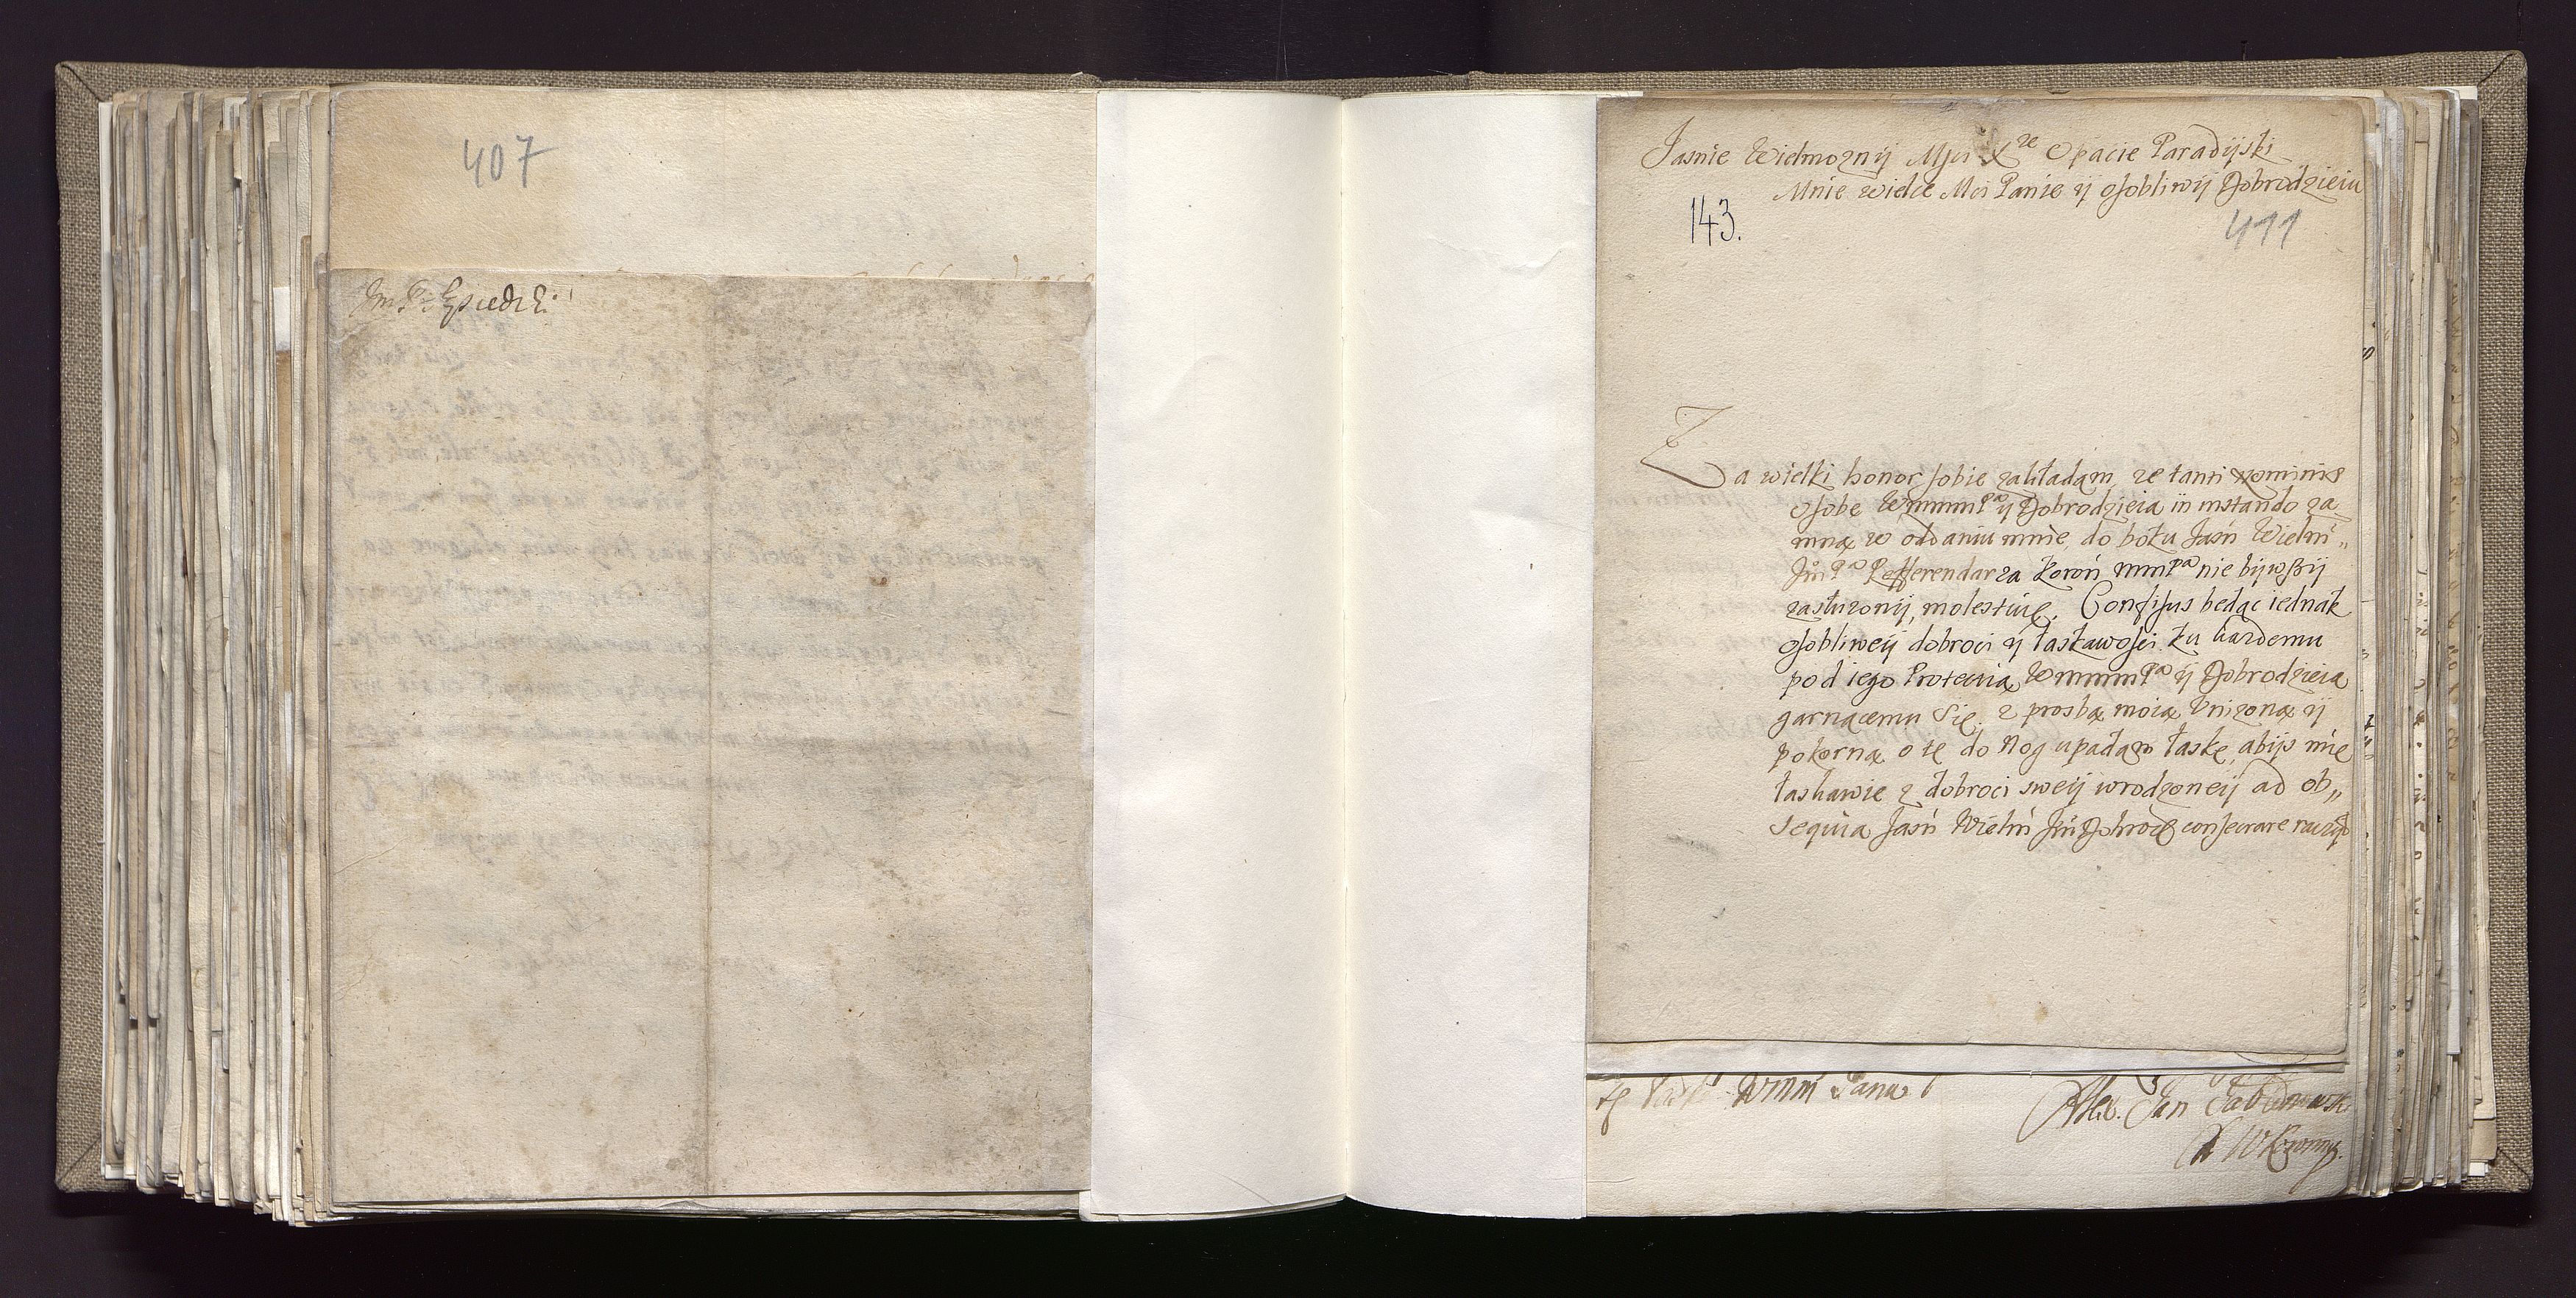 407
Jasnie Wielmoznÿ Msci Xze Opacie Paradÿski
Mnie wielce Mci Panie ÿ osobliwÿ Dobrodzieiu
143.
411
Za wielki honor sobie zakładąm, ze tanti nominis
osobę Wmmmpa ÿ Dobrodzieia in instando za
mną w oddaniu mnie, do boku Jasń Wielm̃„
Jm̃pa Refferendarza Koroń mmpa nie bÿwszÿ
zasłuzonÿ, molestuię. Confisus będąc iednak
osobliweÿ dobroci ÿ łaskawosci ku kazdemu
pod iego Protectią Wmmmpa ÿ Dobrodzieia
garnącemu się. z prosbą moią unizoną ÿ
pokorną o tę do Nog upadam łaskę, abÿs mię
łaskawie z dobroci sweÿ wrodzoneÿ ad ob„
sequia Jasń Wielm̃ Jm̃ Dobrod consecrare raczÿł
Wmm Pana
Alex. Jan